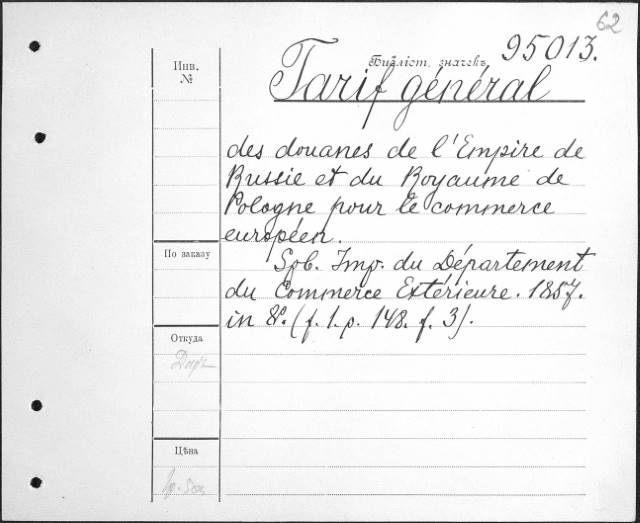 62
95013.
Инв.
№
Библіот. значекъ
Tarif général
des douanes de l'Empire de
Russie et du Royaume de
Pologne pour le commerce
européen.
По заказу
Spb. Imp. du Département
du Commerce Extérieure. 1857.
in 8º. (f. 1. p. 148. f. 3).
Откуда
Даръ
Цѣна